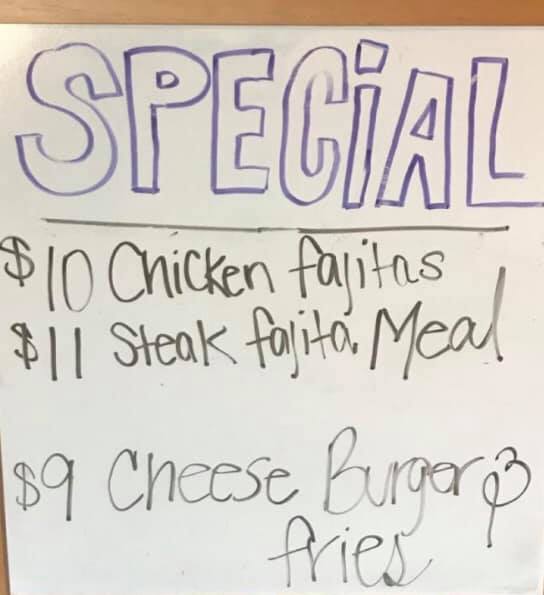 SPECiAL
$10 Chicken fajitas
$11 Steak fajita Meal
$9 Cheese Burger &
fries